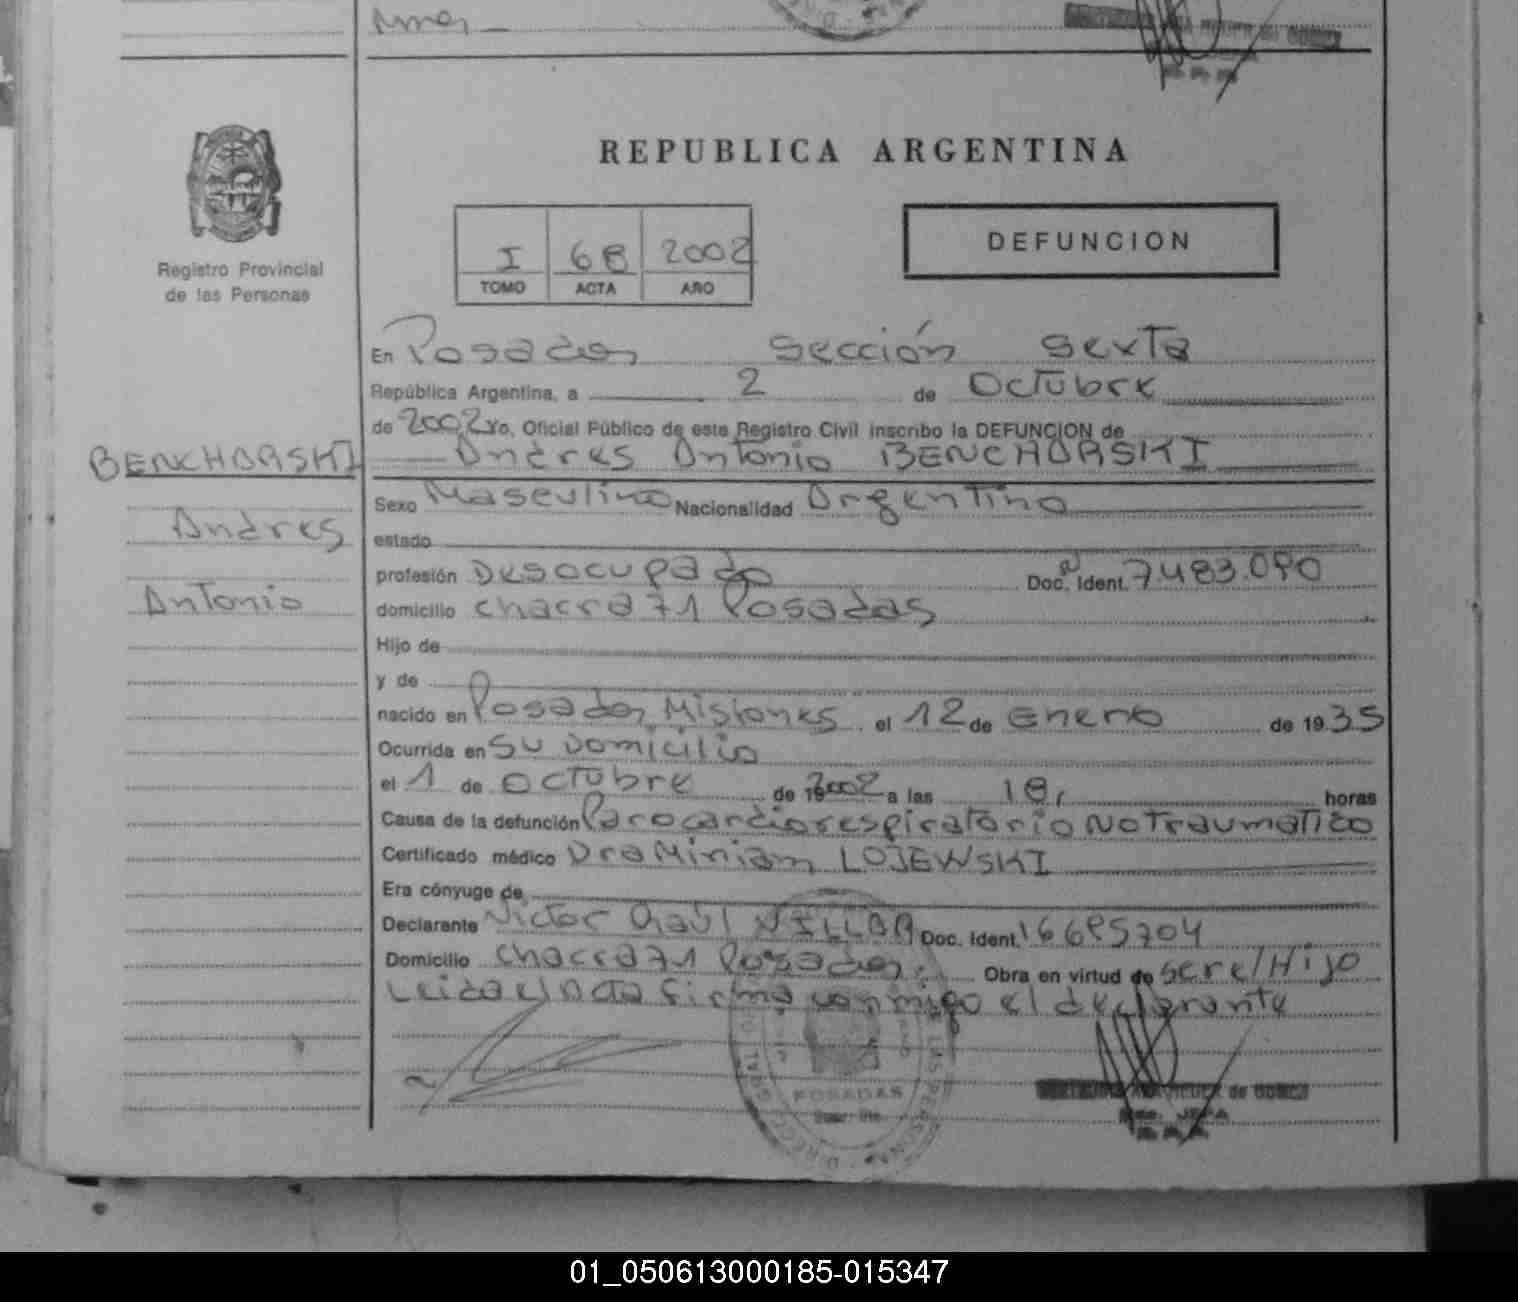 REPUBLICA ARGENTINA
Registro Provincial
de las Personas
I 68 2002
TOMO ACTA AÑO
DEFUNCION
En Posadas Sección Sexta
República Argentina, a 2 de Octubre
de 2002 yo, Oficial Público de este Registro Civil inscribo la DEFUNCION de
Andres Antonio BENCHORSKI
BENCHORSKI
Andres
Antonio
Sexo Masculino Nacionalidad Argentino
estado
profesión Desocupado Doc. Ident. 7.483.090
domicilio chacra 71 Posadas
Hijo de
y de
nacido en Posadas, Misiones, el 12 de Enero de 1935
Ocurrida en Su Domicilio
el 1 de Octubre de 2002 a las 18, horas
Causa de la defunción Parocardiorespiratorio No Traumatico
Certificado médico Dra Miriam LOJEWSKI
Era cónyuge de
Declarante Victor Raúl VILLAR Doc. Ident. 16695704
Domicilio chacra 71 Posadas. Obra en virtud de ser el Hijo
Leida el Acta firma conmigo el declarante
POSADAS
01_050613000185-015347